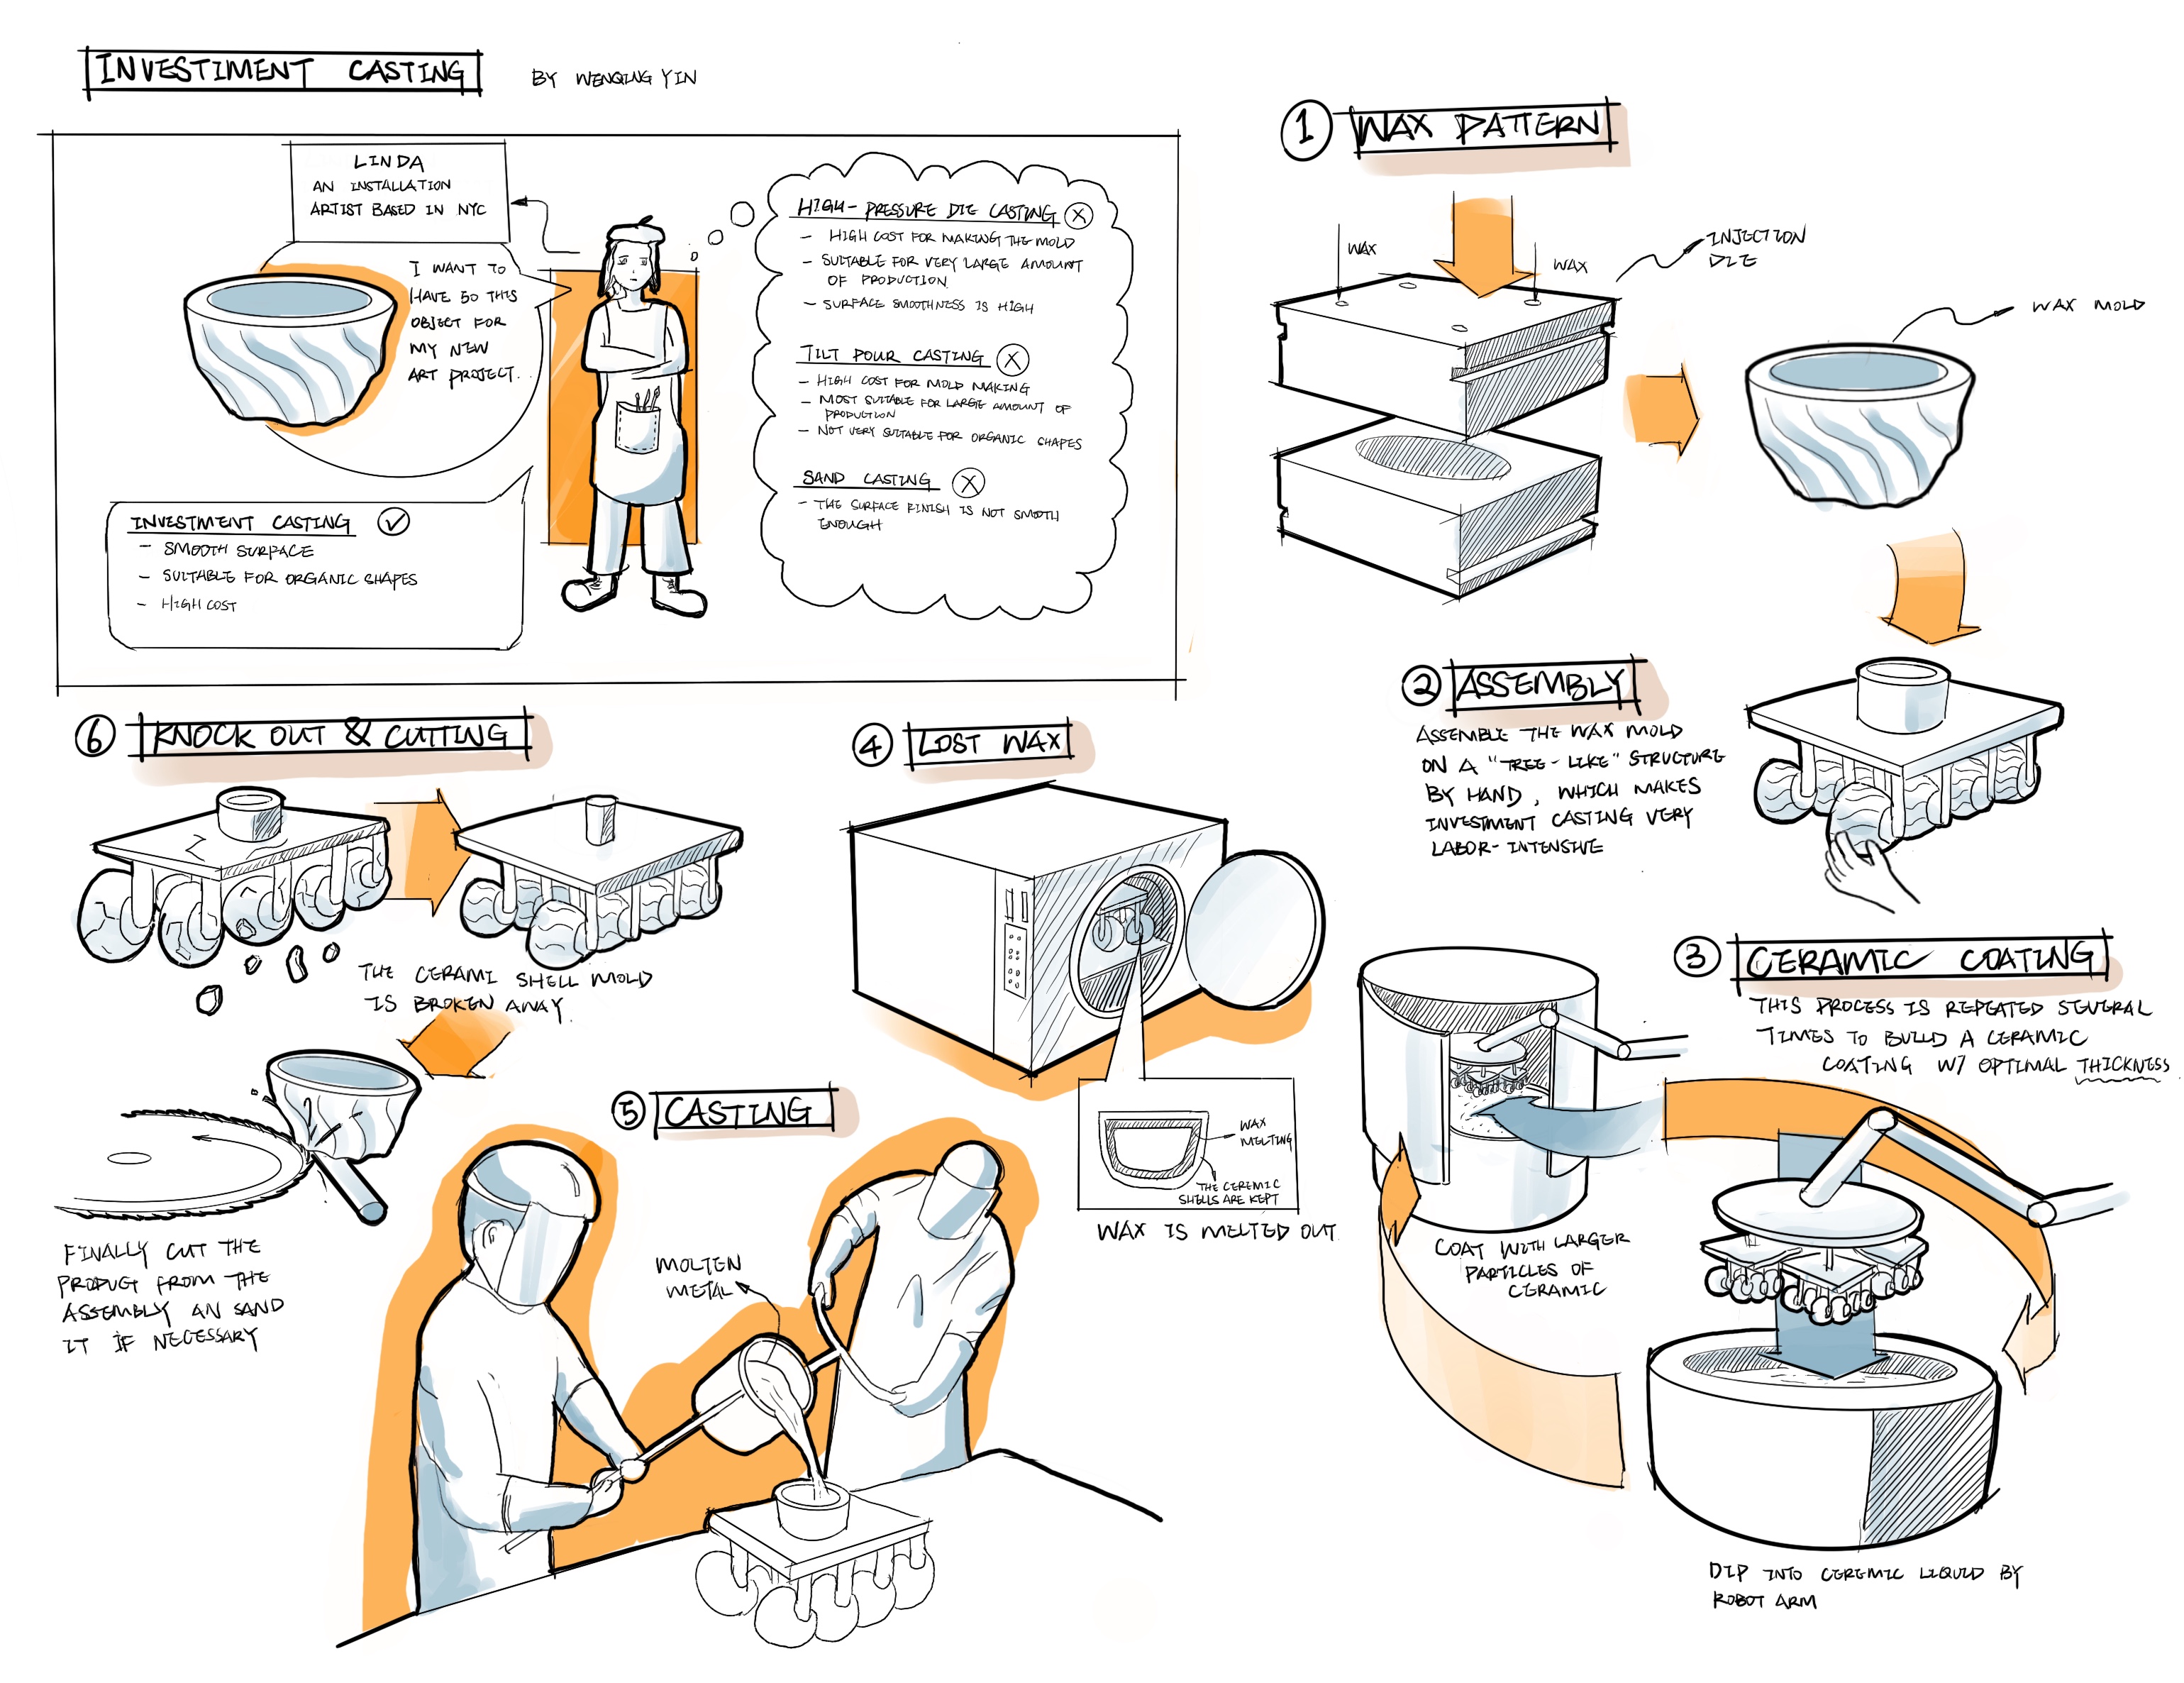 INVESTIMENT CASTING
BY WENQING YIN
LINDA
AN INSTALLATION
ARTIST BASED IN NYC
I WANT TO
HAVE 50 THIS
OBJECT FOR
MY NEW
ART PROJECT.
HIGH-PRESSURE DIE CASTING X
- HIGH COST FOR MAKING THE MOLD
- SUITABLE FOR VERY LARGE AMOUNT
OF PRODUCTION
- SURFACE SMOOTHNESS IS HIGH
TILT POUR CASTING X
- HIGH COST FOR MOLD MAKING
- MOST SUITABLE FOR LARGE AMOUNT OF
PRODUCTION
- NOT VERY SUITABLE FOR ORGANIC SHAPES
SAND CASTING X
- THE SURFACE FINISH IS NOT SMOOTH
ENOUGH
INVESTMENT CASTING ✓
- SMOOTH SURFACE
- SUITABLE FOR ORGANIC SHAPES
- HIGH COST
1 WAX PATTERN
WAX
WAX
INJECTION
DIE
WAX MOLD
2 ASSEMBLY
ASSEMBLE THE WAX MOLD
ON A "TREE-LIKE" STRUCTURE
BY HAND, WHICH MAKES
INVESTMENT CASTING VERY
LABOR-INTENSIVE
3 CERAMIC COATING
THIS PROCESS IS REPEATED SEVERAL
TIMES TO BUILD A CERAMIC
COATING W/ OPTIMAL THICKNESS
COAT WITH LARGER
PARTICLES OF
CERAMIC
DIP INTO CEREMIC LIQUID BY
ROBOT ARM
4 LOST WAX
WAX
MELTING
THE CEREMIC
SHELLS ARE KEPT
WAX IS MELTED OUT
5 CASTING
MOLTEN
METAL
6 KNOCK OUT & CUTTING
THE CERAMI SHELL MOLD
IS BROKEN AWAY.
FINALLY CUT THE
PRODUCT FROM THE
ASSEMBLY AN SAND
IT IF NECESSARY